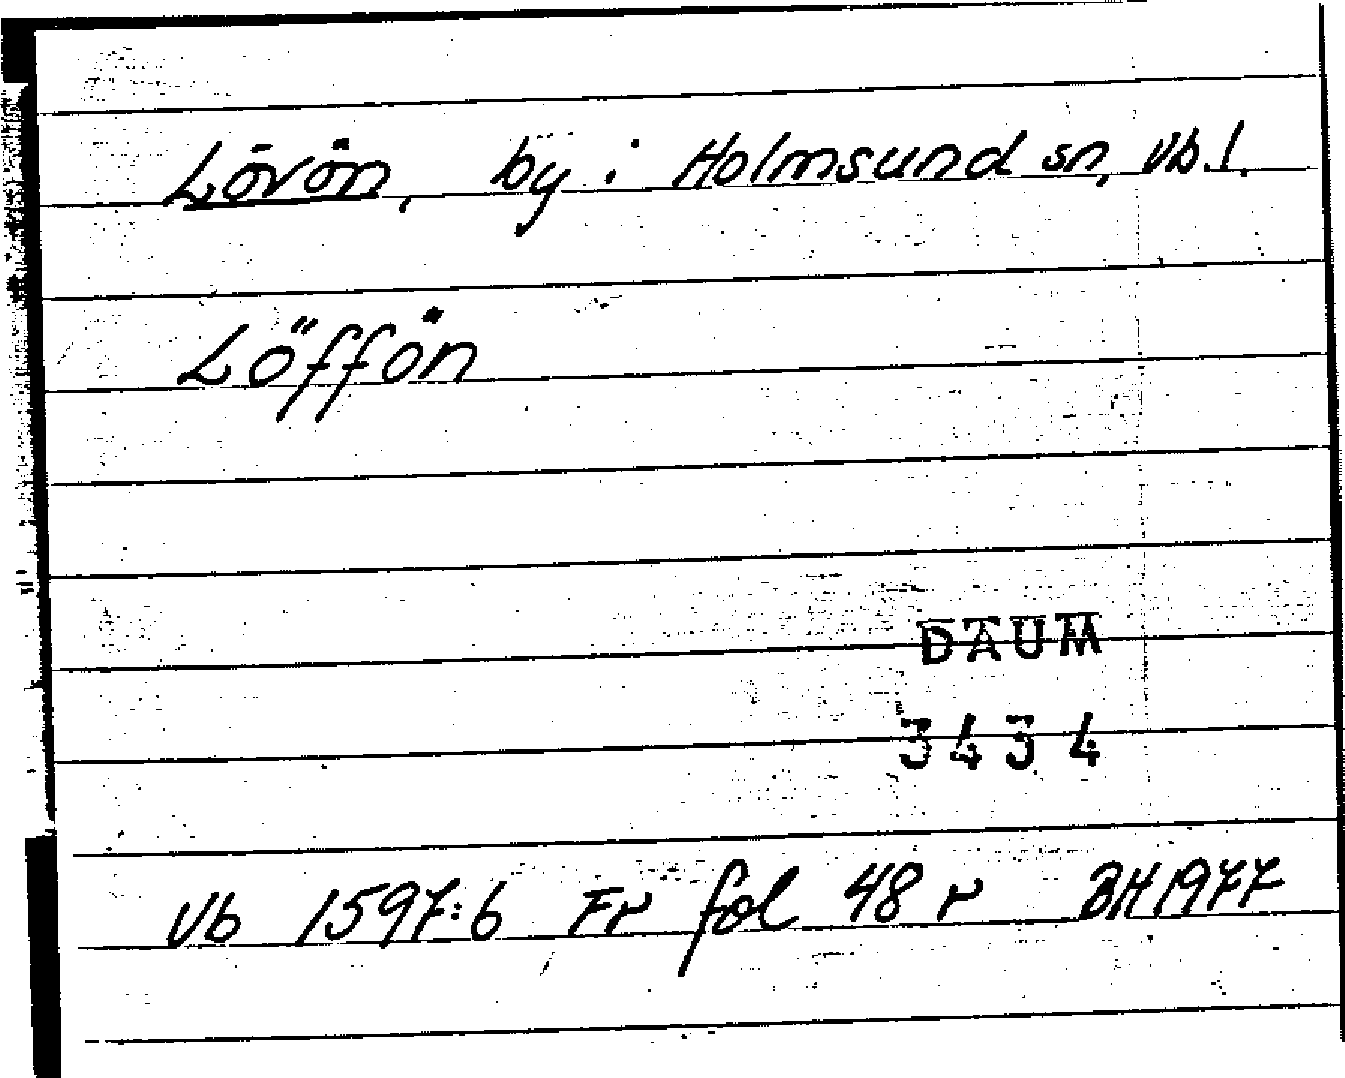 Lövön, by i Holmsund sn, Vb.l.
Löffön
DAUM
3434
Vb 1597:6 Fr fol 48 r BH 1977